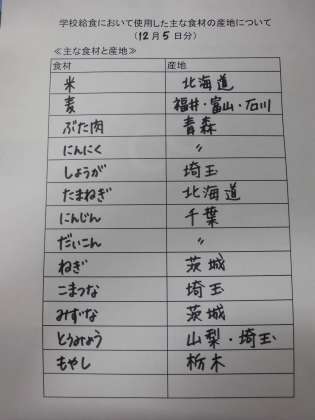 学校給食において使用した主な食材の産地について
(12月5日分)
≪主な食材と産地≫
食材 産地
米 北海道
麦 福井・富山・石川
ぶた肉 青森
にんにく 〃
しょうが 埼玉
たまねぎ 北海道
にんじん 千葉
だいこん 〃
ねぎ 茨城
こまつな 埼玉
みずな 茨城
とうみょう 山梨・埼玉
もやし 栃木